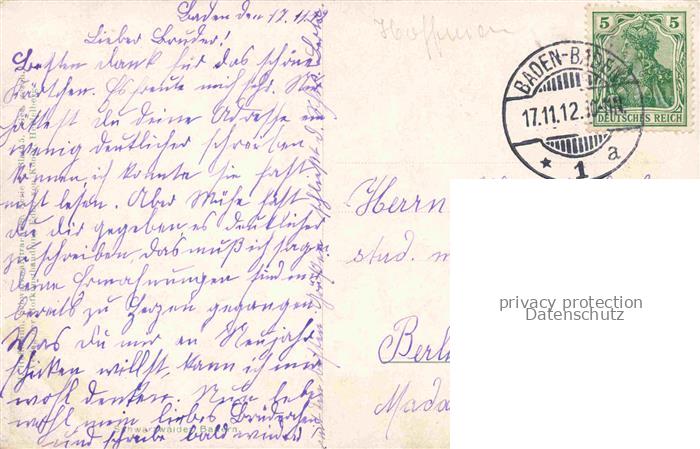 Baden den 17.11.12
Lieber Bruder!
Besten Dank für das schöne
Kärtchen. Es freute mich sehr. Nur
hättest du deine Adresse ein
wenig deutlicher schreiben
können, ich konnte sie fast
nicht lesen. Aber Mühe hast
du dir gegeben, es deutlicher
zu schreiben, das muß ich sagen.
Deine Ermahnungen sind mir
bereits zu Herzen gegangen.
Was du mir an Neujahr
schicken willst, kann ich mir
wohl denken. Nun lebe
wohl mein liebes Brüderchen
und schreibe bald wieder
Schwarzwälder Bauern
Hoffman
5 5
DEUTSCHES REICH
BADEN-BADEN
17.11.12.
* 1 a
Herrn
stud. m
Berli
Mada
privacy protection
Datenschutz